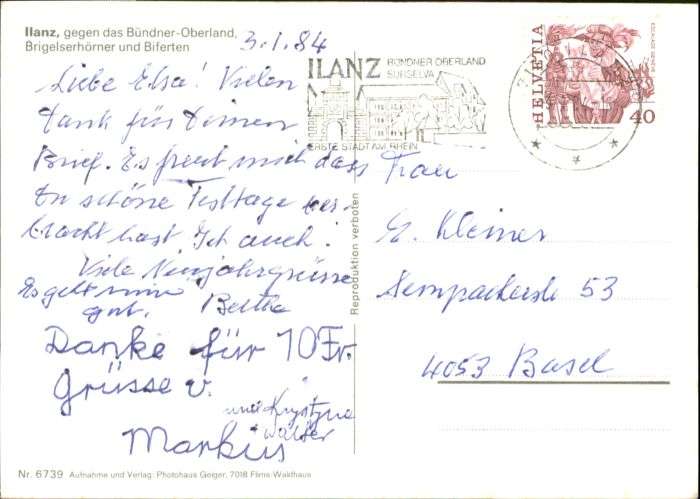 Ilanz, gegen das Bündner-Oberland,
Brigelserhörner und Biferten
3.1.84
Liebe Elsa! Vielen
Dank für Deinen
Brief. Es freut mich dass
Du schöne Festtage ver-
bracht hast. Ich auch!
Viele Neujahrgrüsse
Es geht mir
gut. Bertha
Danke für 10 Fr.
Grüsse v.
und Krystyna
Walter
Markus
ILANZ BÜNDNER OBERLAND
SURSELVA
ERSTE STADT AM RHEIN
HELVETIA
40
Reproduktion verboten
Frau
E. Kleiner
Sempacherstr 53
4053 Basel
Nr. 6739 Aufnahme und Verlag: Photohaus Geiger, 7018 Flims-Waldhaus